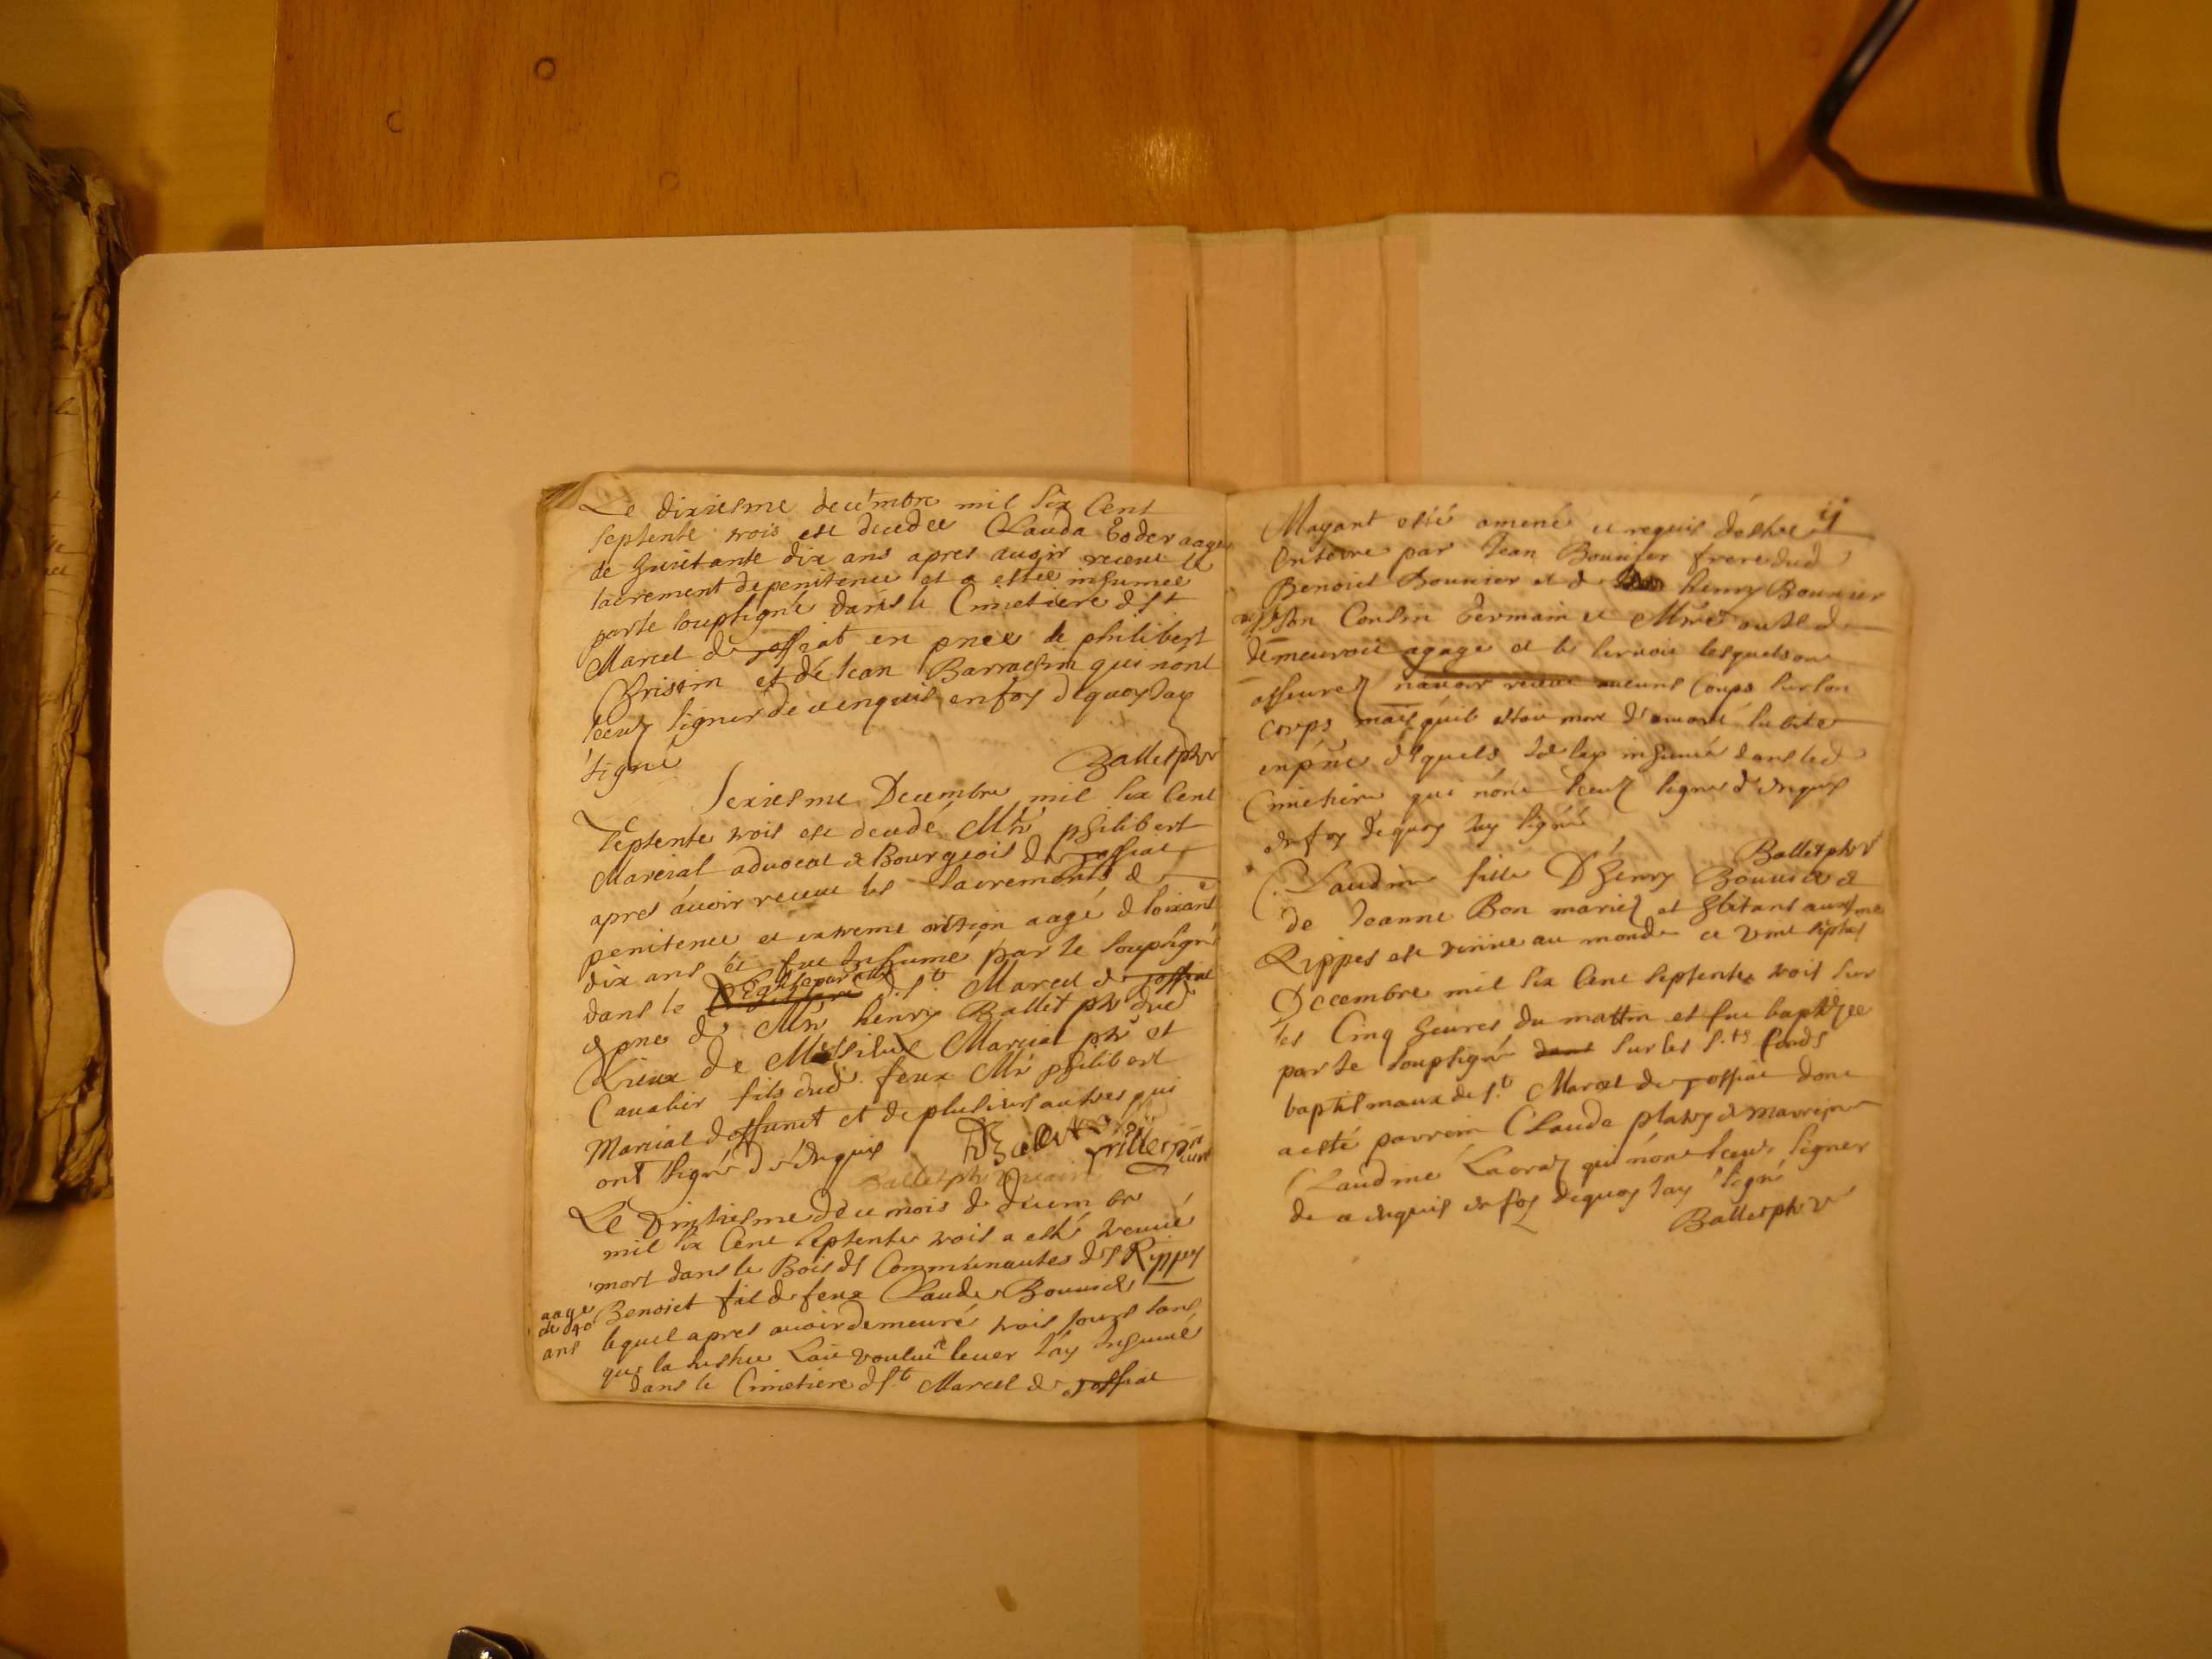 Le dixiesme decembre mil six cent
septente trois est decedee Clauda Goder aagee
de huictante dix ans apres avoir receue le
sacrement de penitence et a estée inhumee
par le soupsigné dans le Cimetiere d St
Marcel de Joffiat en pnce de philibert
Brisson et de Jean Barrachin qui nont
sceuz signer de ce enquis en foy dequoy Jay
signé
Ballet pbr
Le sexiesme Decembre mil six cent
septente trois est decedé Mre philibert
Marcial advocat & Bourgeois de Joffiat
apres avoir receu les sacrements de
penitence et extreme onction aagé de soixante
dix ans et fut Inhumé par le soupsigné
dans le Eglise par St Marcel de Joffiat
e pnce de Mre henry Ballet pbr dud
Lieux de Messieux Marcial pbr et
Cavalier fils dud feux Mre philibert
Marcial deffunct et de plusieurs autres qui
ont signé de ce enquis
Ballet pbr vicaire
Le vintiesme de ce mois de decembre
mil six cent septente trois a esté treuvé
mort dans le Bois des Communautes des Rippes
Benoict fil de feux Claude Bouvier
aage
de 40
ans
lequel apres avoir demeuré trois Jours sans
que la Justice Laie voulu lever Jay Inhumé
dans le Cimetiere d St Marcel de Joffiat
ij
Mayant esté amené et requis destre
Enterré par Jean Bouvier frere dud
Benoict Bouvier et de henry Bouvier
son Cousin Germain et Mre
demeuroit agage et le servoit lesquels ont
asseurez navoir receu aucuns Coups sur son
corps mais quil estoit mort de mort subite
en pnce desquels Je lay inhumé dans led
Cimetiere qui nont sceuz signer de enquis
en foy dequoy Jay signé
Ballet pbr
Claudine fille D'henry Bouvier &
de Jeanne Bon mariez et hbitans aux
Rippes est venue au monde ce vint septies
Decembre mil six cent septente trois sur
les Cinq heures du mattin et fut baptizee
par le soupsigné dans sur les Sts fonds
baptismaux de St Marcel de Joffiat dont
a esté parrein Claude platey et marreine
Claudine Lacraz qui nont sceus signer
de ce enquis en foy dequoy Jay signé
Ballet pbr